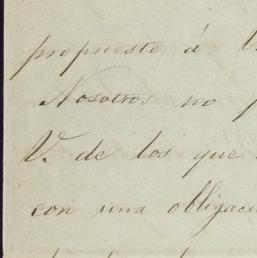 propuesto á V.
Nosotros no p
V. de los que
con una obligaci